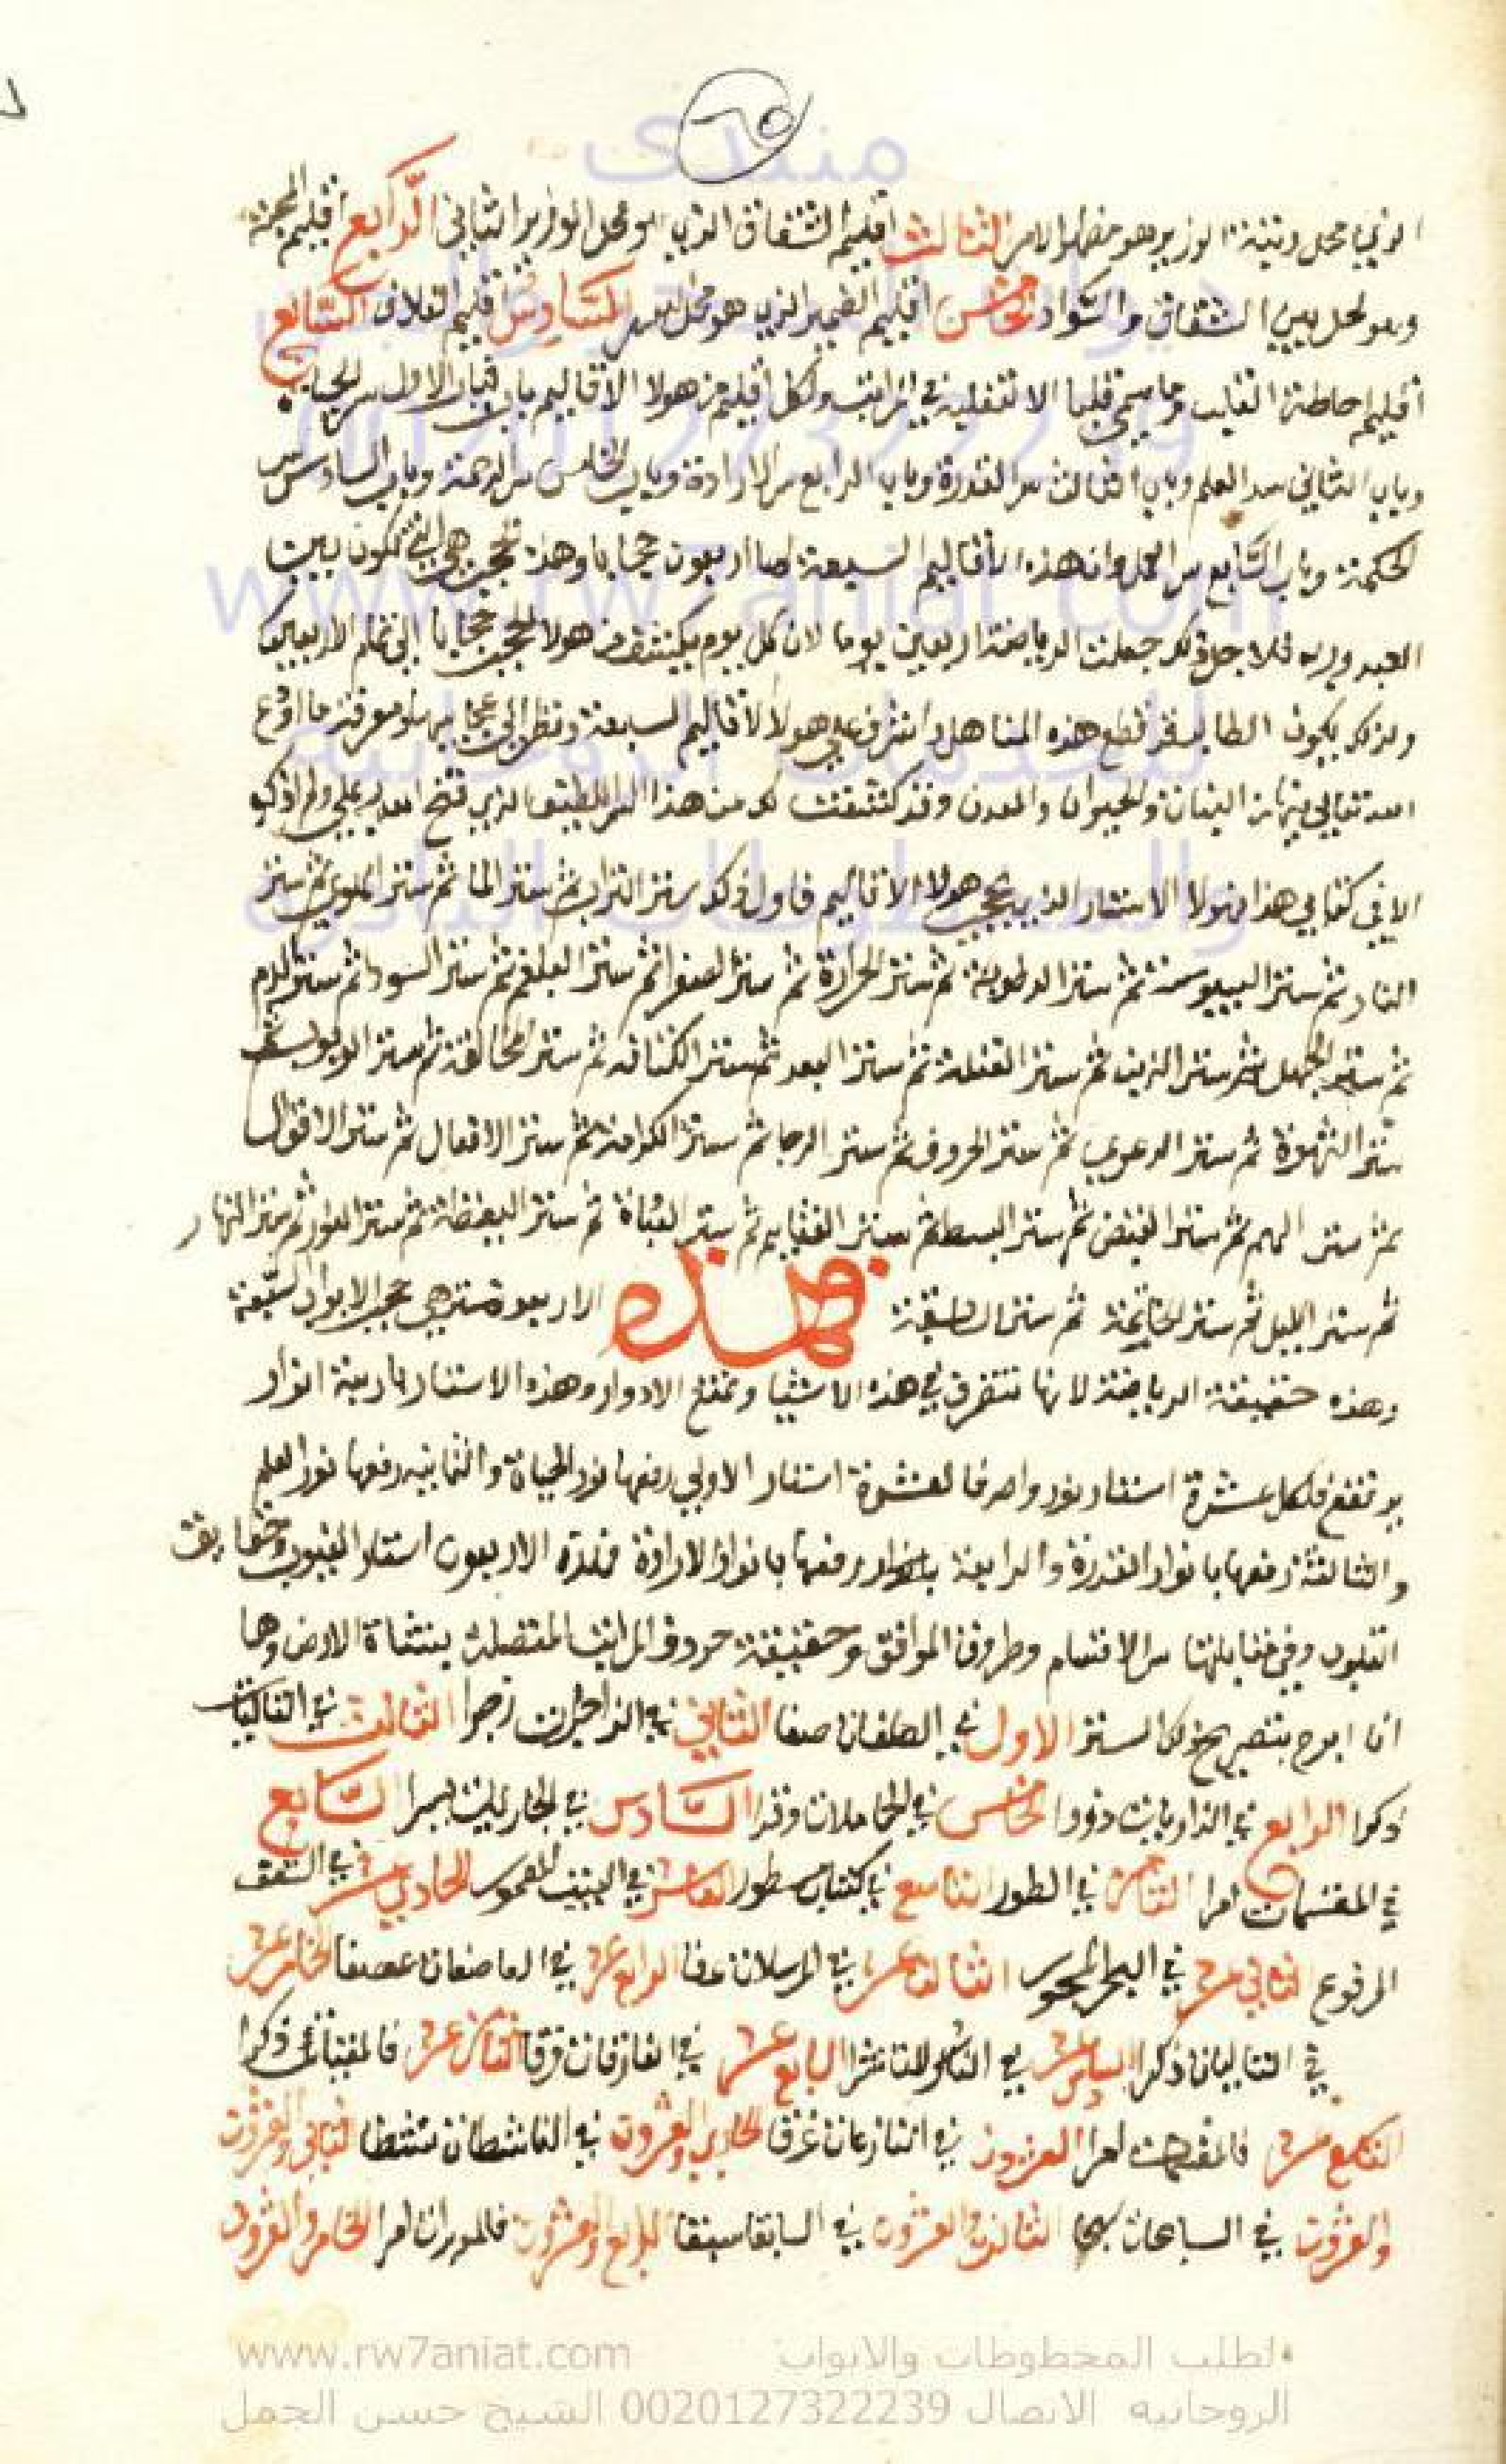 ٦٥
الذي محل رتبته الوزير هو مظهر الامر الثالث اقليم الشغاف الذي هو محل الوزير الثاني الرابع اقليم المحبة
وهو محل بين الشغاف والسواد الخامس اقليم الضمير الذي هو محل السر السادس اقليم الغلاف السابع
اقليم احاطة القلب وما سمي قلبا الا لتقلبه في المراتب ولكل اقليم من هولا الاقاليم باب فباب الاول سر الحياة
وباب الثاني سر العلم وباب الثالث سر القدرة وباب الرابع سر الارادة وباب الخامس سر الرحمة وباب السادس سر
الحكمة وباب السابع سر وان هذه الاقاليم السبعة لها اربعون حجابا وهذه الحجب هي التي تكون بين
العبد وربه فلاجل ذلك جعلت الرياضة اربعين يوما لان كل يوم يكشف من هولا الحجب حجابا الى تمام الاربعين
ولذلك يكون الطالب قد قطع هذه المناهل واشرف على هولا الاقاليم السبعة ونظر الى عجايبها ومعرفة ما اودع
الله تعالى فيها من النبات والحيوان والمعدن وقد كشفت لك من هذا السر اللطيف الذي فتح الله به علي ولم اذكره
الا في كتابي هذا الاستار الذي تحجب هولا الاقاليم فاول ذلك ستر التراب ثم ستر الما ثم ستر الهوى ثم ستر
النار ثم ستر اليبوسة ثم ستر الرطوبة ثم ستر الحرارة ثم ستر الصفرا ثم ستر البلغم ثم ستر السودا ثم ستر الدم
ثم ستر الجهل ثم ستر الزين ثم ستر الغفلة ثم ستر البعد ثم ستر الكثافة ثم ستر المخالفة ثم ستر ثم
ستر الشهوة ثم ستر الدعوى ثم ستر الحروف ثم ستر الرجا ثم ستر الكرامة ثم ستر الافعال ثم ستر الاقوال
ثم ستر الهم ثم ستر القبض ثم ستر البسط ثم ستر ثم ستر ثم ستر اليقظة ثم ستر ثم ستر النهار
ثم ستر الليل ثم ستر الخاتمة ثم ستر فهذه الاربعون ستر هي حجب الابواب السبعة
وهذه حقيقة الرياضة لانها تتفرق في هذه الاشيا وتقطع الادوار وهذه الاستار باربعة انوار
يرتفع فلكل عشرة استار نور واحد فالعشرة استار الاولى رفعها نور الحياة والثانية رفعها نور العلم
والثالثة رفعها بانوار القدرة والرابعة رفعها بانوار الارادة فهذه الاربعون استار الغيوب وحقايق
القلوب وفي مقابلتها سر الاقسام وطروف الموافق وحقيقة حروف المراتب المتصلة بنشاة الارض وها
انا ابوح بتصريح ذلك الستر الاول في الصافات صفا الثاني في الزاجرات زجرا الثالث في التاليات
ذكرا الرابع في الذاريات ذروا الخامس في الحاملات وقرا السادس في الجاريات يسرا السابع
في المقسمات امرا الثامن في الطور التاسع في كتاب مسطور العاشر في البيت المعمور الحادي عشر في السقف
المرفوع الثاني عشر في البحر المسجور الثالث عشر في المرسلات عرفا الرابع عشر في العاصفات عصفا الخامس عشر
في التاليات ذكرا السادس عشر في الناشرات نشرا السابع عشر في الفارقات فرقا الثامن عشر فالملقيات ذكرا
التاسع عشر فالمقسمات امرا العشرون في النازعات غرقا الحادي والعشرون في الناشطات نشطا الثاني والعشرون
والعشرون في السابحات سبحا الثالث والعشرون في السابقات سبقا الرابع والعشرون فالمدبرات امرا الخامس والعشرون
منتدى
0020127322239
www.rw7aniat.com
للخدمات الروحانية
والمخطوطات النادرة
www.rw7aniat.com لطلب المخطوطات والابواب
الروحانيه الاتصال 0020127322239 الشيخ حسن الجمل